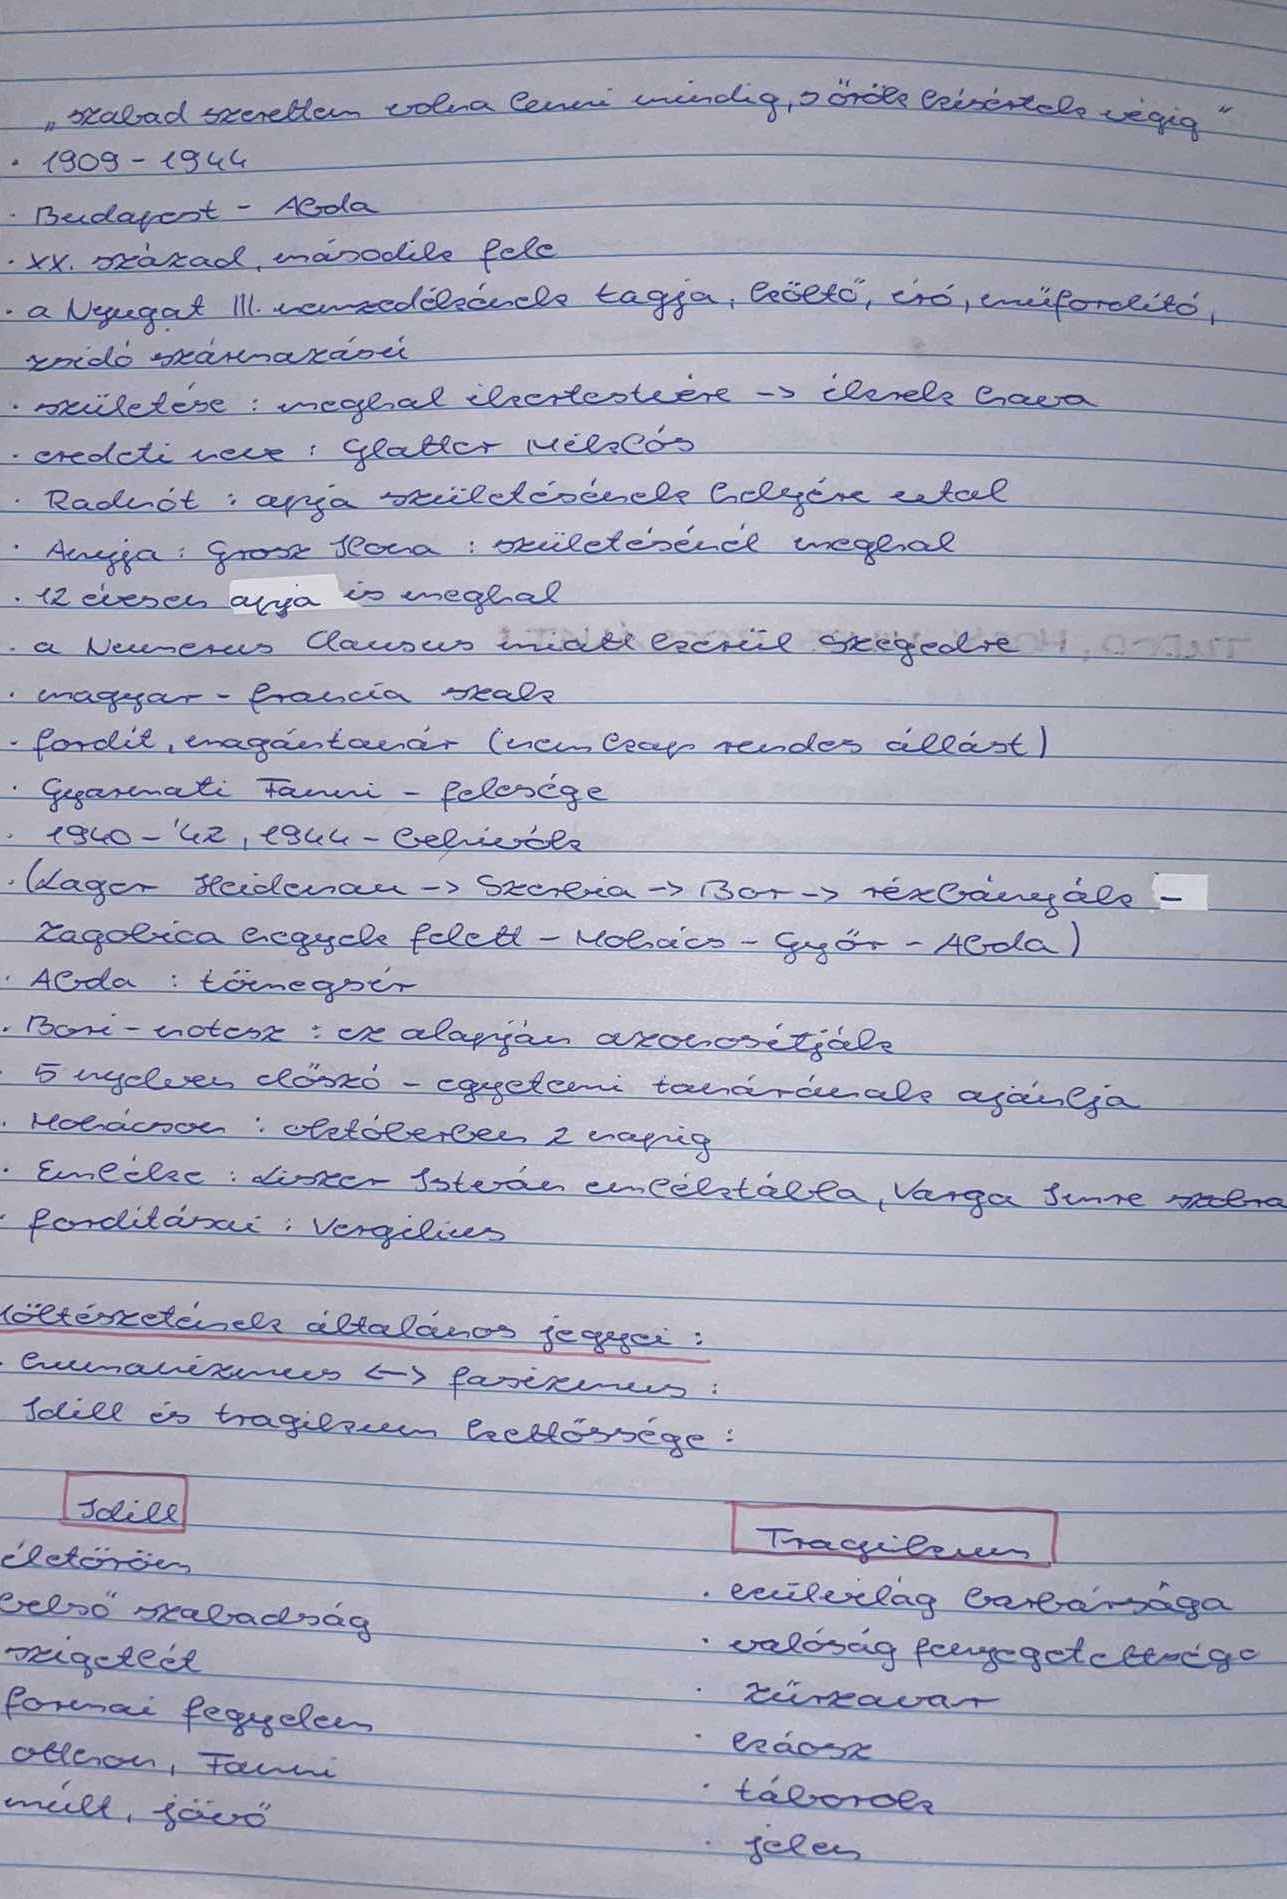 „szabad szerettem volna lenni mindig, s őrök kísértek végig"
· 1909 - 1944
· Budapest - Abda
· XX. század, második fele
· a Nyugat III. nemzedékének tagja, költő, író, műfordító,
zsidó származású
· születése : meghal ikertestvére -> ikrek hava
· eredeti neve : Glatter Miklós
· Radnót : apja születésének helyére utal
· Anyja : Grosz Ilona : születésénél meghal
· 12 évesen apja is meghal
· a Numerus Clausus miatt kerül Szegedre
· magyar - francia szak
· fordít, magántanár (nem kap rendes állást)
· Gyarmati Fanni - felesége
· 1940 - '42, 1944 - behívók
· (Lager Heidenau -> Szerbia -> Bor -> rézbányák -
Zagubica hegyek felett - Mohács - Győr - Abda)
· Abda : tömegsír
· Bori - notesz : ez alapján azonosítják
· 5 nyelven előszó - egyetemi tanárának ajánlja
· Mohácson : októberben 2 napig
· Emléke : István emléktábla, Varga Imre szobra
· fordításai : Vergilius
költészetének általános jegyei :
· humanizmus <-> fasizmus :
Idill és tragikum kettőssége :
Idill
életöröm
belső szabadság
szigetlét
formai fegyelem
otthon, Fanni
múlt, jövő
Tragikum
· külvilág barbársága
· valóság fenyegetettsége
· zűrzavar
· káosz
· táborok
· jelen